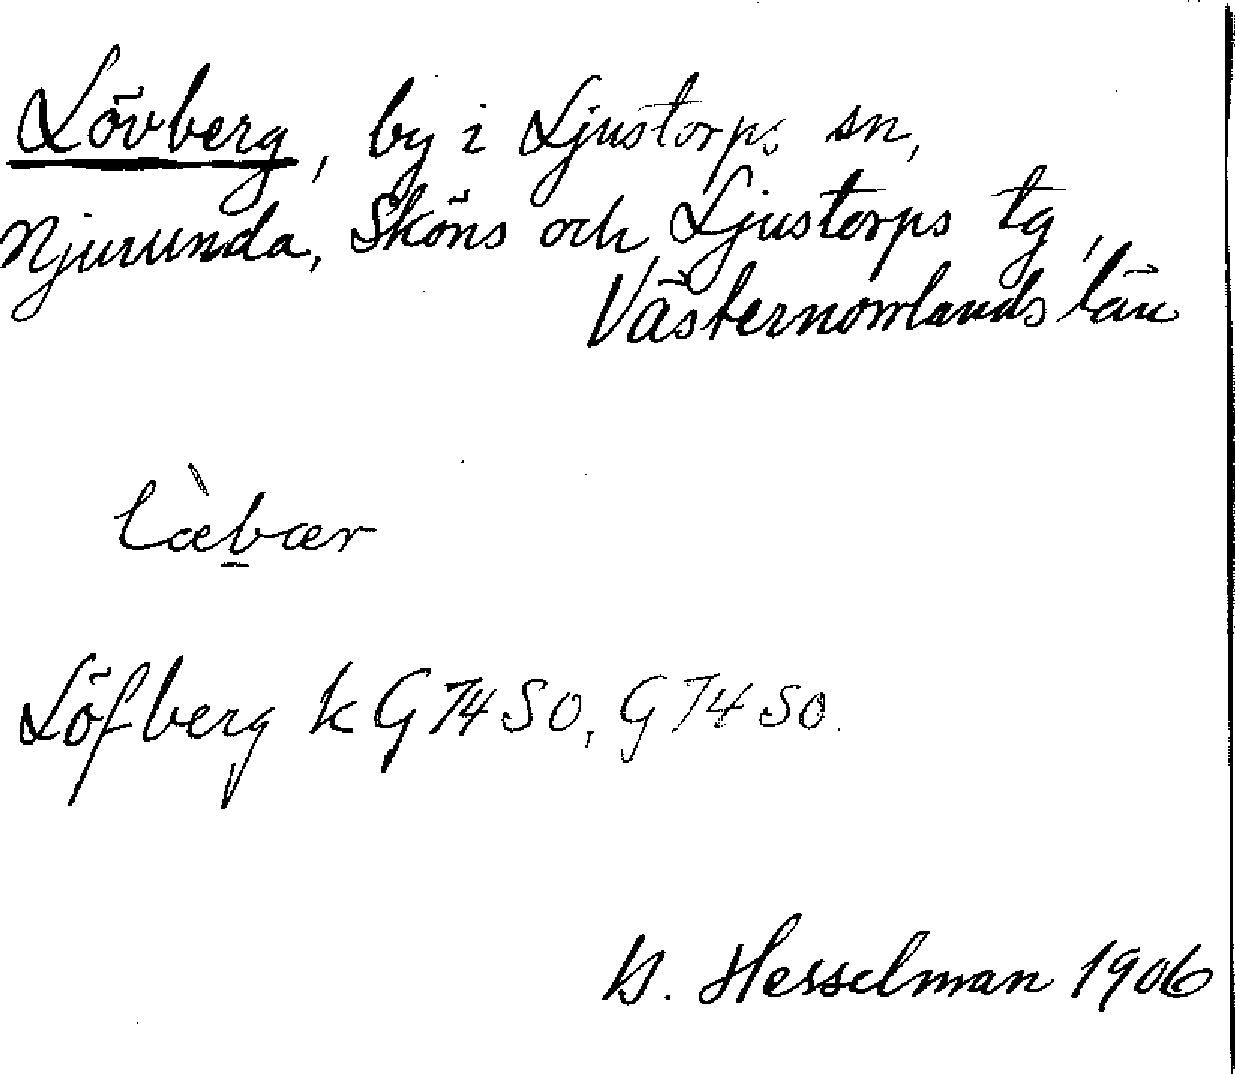 Lövberg, by i Ljustorps sn,
Njurunda, Sköns och Ljustorps tg,
Västernorrlands län
læ̀bær
Löfberg k G 74 SO, G 74 SO.
B. Hesselman 1906